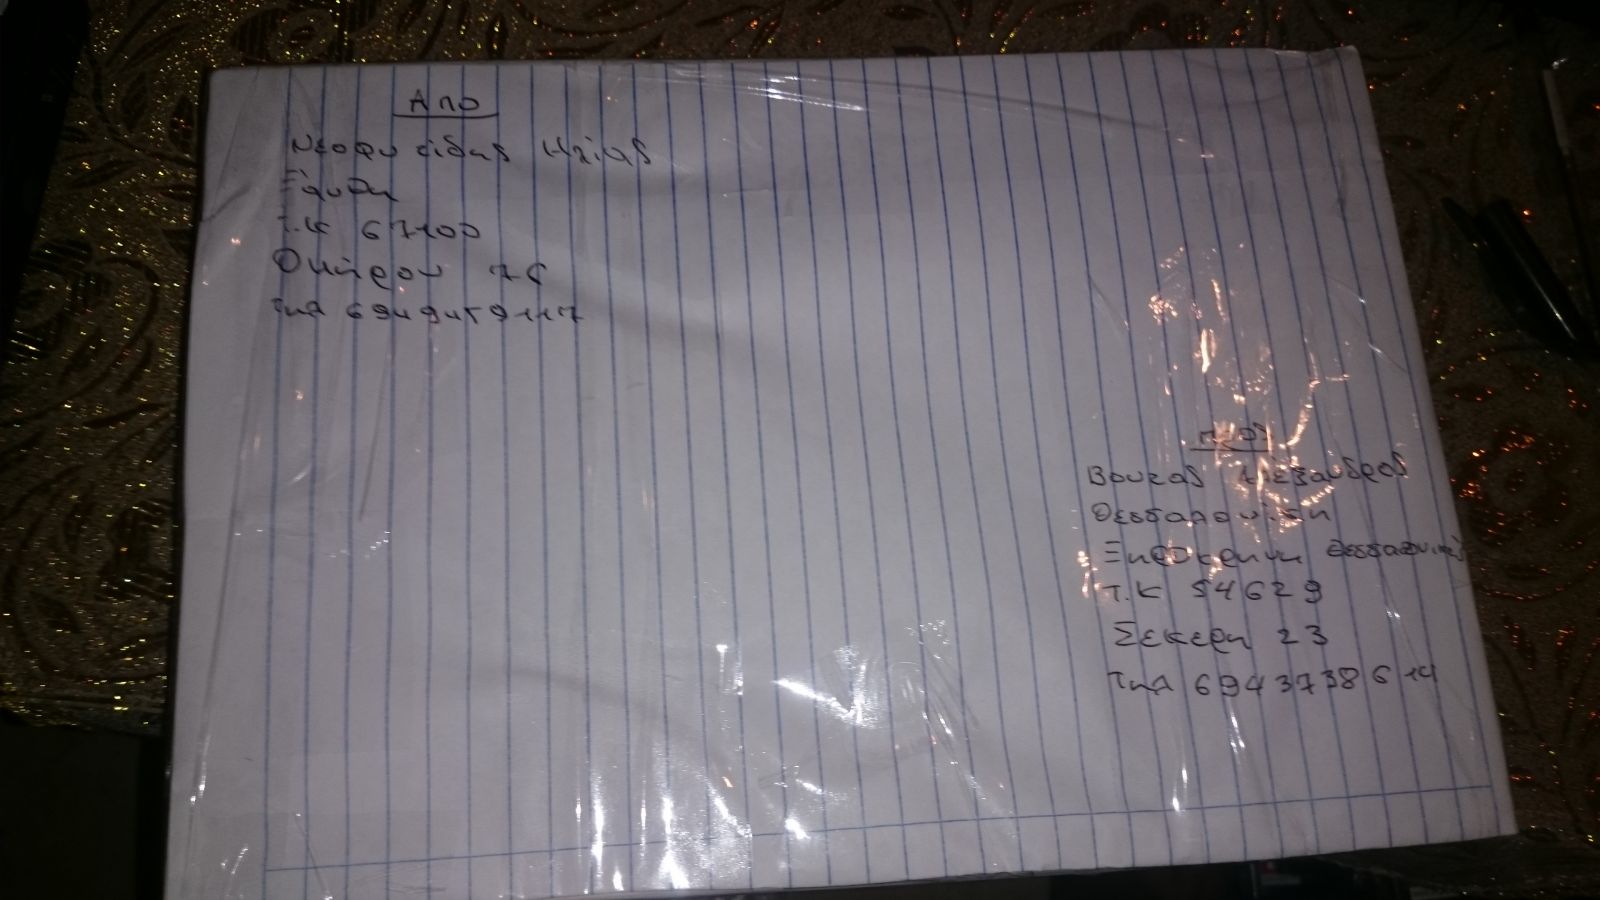 Απο
Νεοφυτιδης Ηλιας
Ξάνθη
Τ.Κ 67100
Ομήρου 76
Τηλ 6949459117
Προς
Βουκας Αλεξανδρος
Θεσσαλονικη
Ξηροκρηνη Θεσσαλονικης
Τ.Κ 54629
Σεκερη 23
Τηλ 6943738614